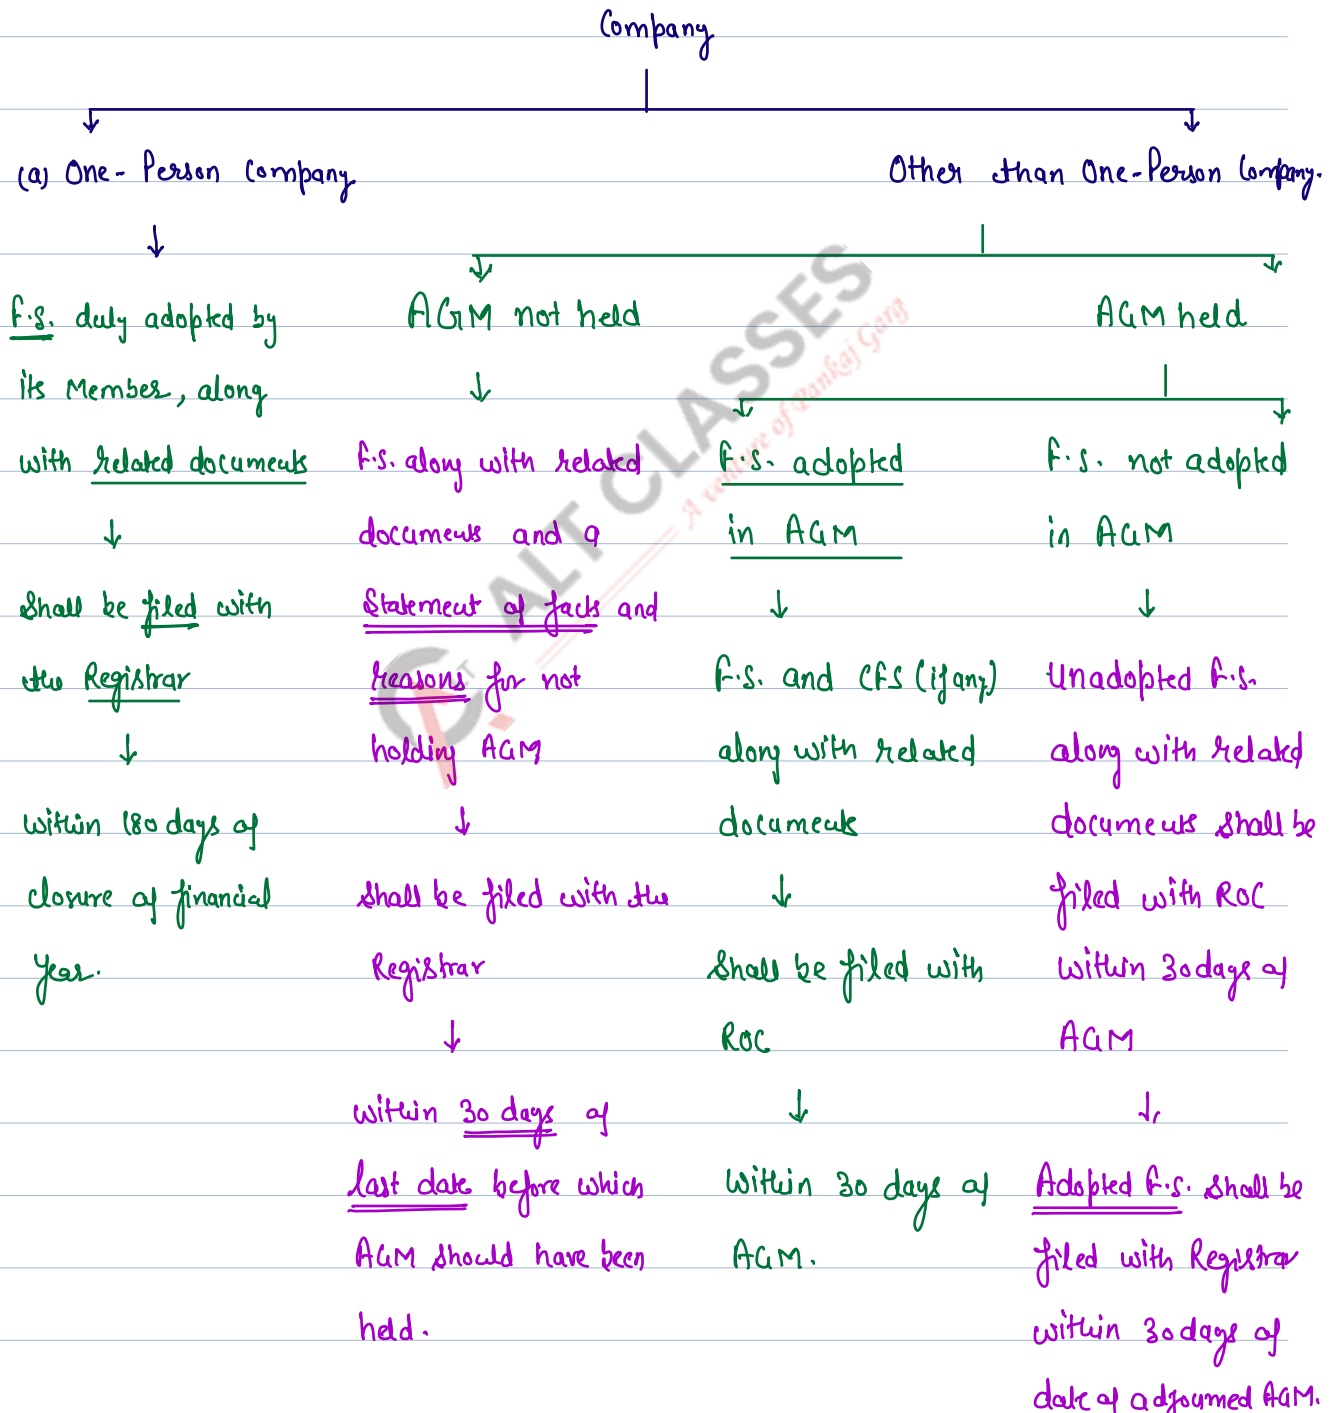 Company
(a) One-Person Company
Other than One-Person Company.
F.S. duly adopted by
its Member, along
with related documents
Shall be filed with
the Registrar
Within 180 days of
closure of financial
Year.
AGM not held
F.S. along with related
documents and a
Statement of facts and
reasons for not
holding AGM
Shall be filed with the
Registrar
within 30 days of
last date before which
AGM should have been
held.
AGM held
F.S. adopted
in AGM
F.S. and CFS (if any)
along with related
documents
Shall be filed with
ROC
Within 30 days of
AGM.
F.S. not adopted
in AGM
Unadopted F.S.
along with related
documents shall be
filed with ROC
Within 30 days of
AGM
Adopted F.S. shall be
filed with Registrar
within 30 days of
date of adjourned AGM.
ALT CLASSES
A venture of Pankaj Garg